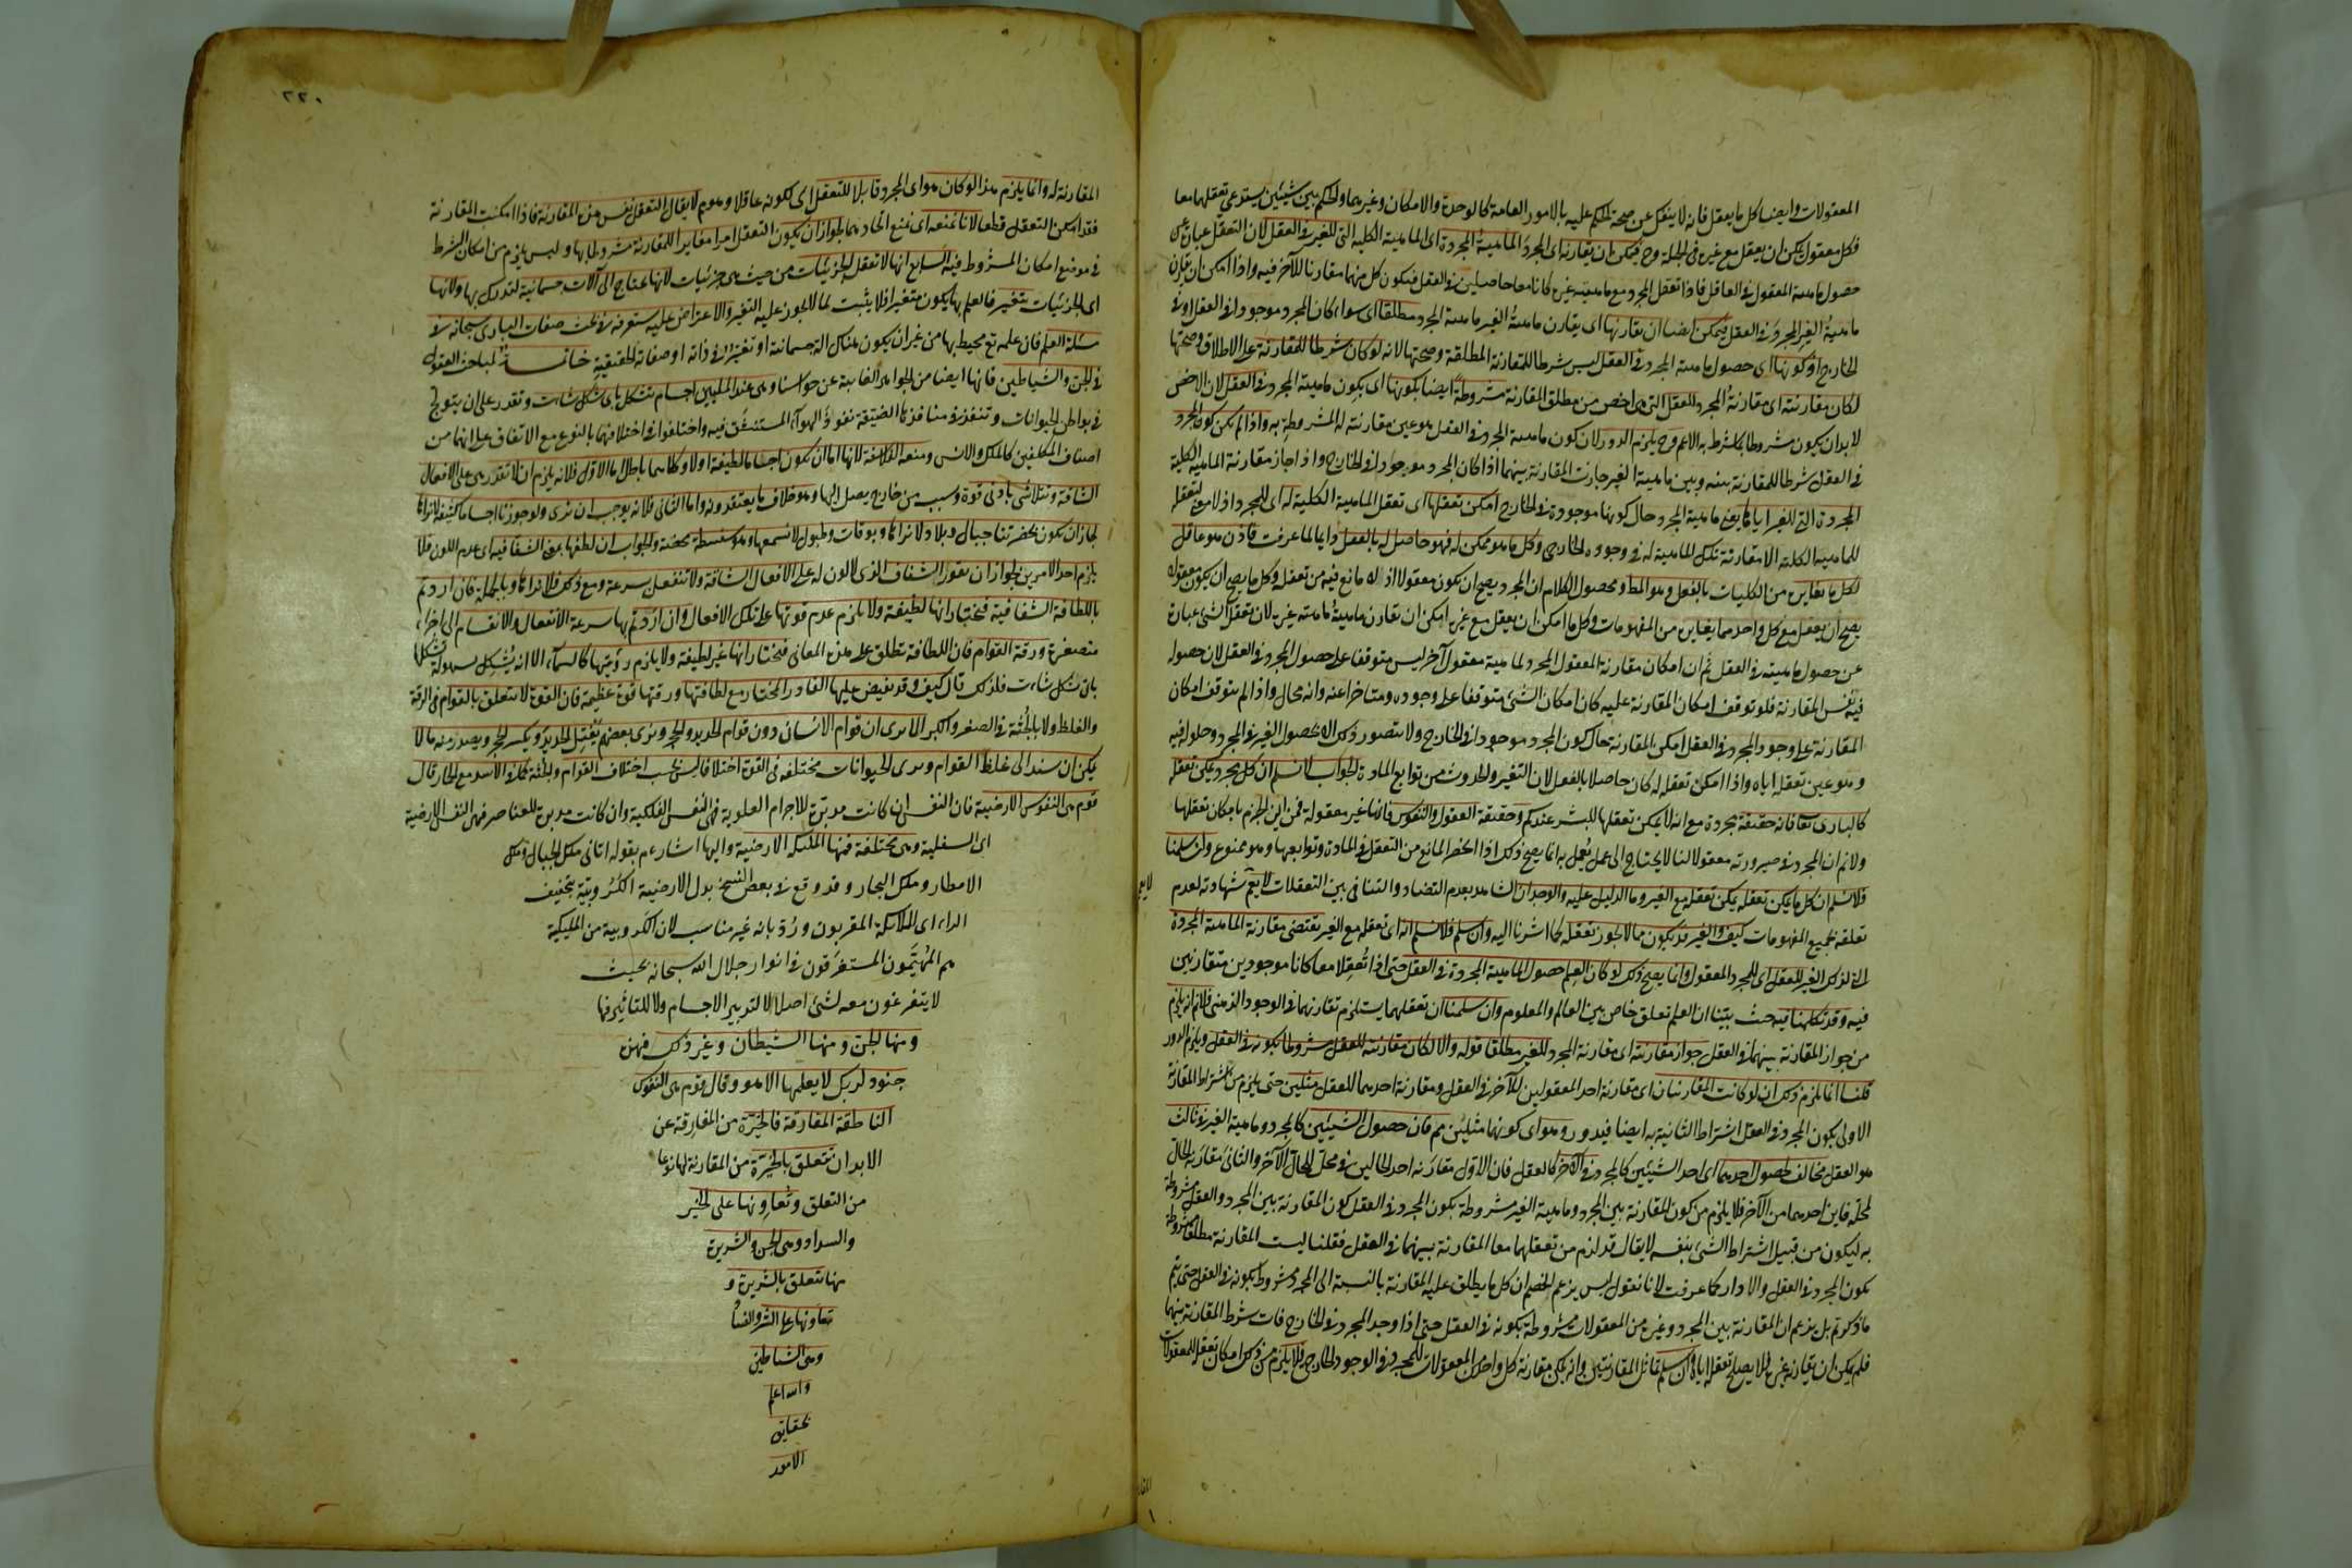 المعقولات وايضا كل ما يعقل فانه لا ينفك عن صحة الحكم عليه بالامور العامة كالوحدة والامكان وغيرهما والحكم بين شيئين يستدعي تعقلهما معا
فكل معقول يمكن ان يعقل مع غيره في الجملة وح فيمكن ان يقارنه اى المجرد الماهية المجردة اى الماهية الكلية التى للغير في العقل لان التعقل عبارة عن
حصول ماهية المعقول في العاقل فاذا تعقل المجرد مع ماهية غيره كانا معا حاصلين في العقل فيكون كل منهما مقارنا للآخر فيه واذا امكن ان يقارن
ماهية الغير المجرد في العقل فيمكن ايضا ان يقارنها اى يقارن ماهية الغير ماهية المجرد مطلقا اى سواء كان المجرد موجودا في العقل او في
الخارج اذ كونها اى حصول ماهية المجرد في العقل ليس شرطا للمقارنة المطلقة وصحتها لانه لو كان شرطا للمقارنة على الاطلاق وصحتها
لكان مقارنته اى مقارنة المجرد للعقل التى هى اخص من مطلق المقارنة مشروطة ايضا بكونها اى بكون ماهية المجرد في العقل لان الاخص
لابد ان يكون مشروطا بما شرط به الاعم وح يلزم الدور لان كون ماهية المجرد في العقل هو عين مقارنته له المشروطة به واذا لم يكن كون المجرد
في العقل شرطا للمقارنة بينه وبين ماهية الغير جازت المقارنة بينهما اذا كان المجرد موجودا في الخارج واذا جاز مقارنة الماهية الكلية
المجردة التى للغير اياها يعنى ماهية المجرد حال كونها موجودة في الخارج امكن تعقلها اى تعقل الماهية الكلية له اى للمجرد اذ لا معنى لتعقله
للماهية الكلية الا مقارنة تلك الماهية له في وجوده الخارجى وكل ما هو ممكن له فهو حاصل له بالفعل دايما لما عرفت فاذن هو عاقل
لكل ما يغايره من الكليات بالفعل وهو المط ومحصول الكلام ان المجرد يصح ان يكون معقولا اذ لا مانع فيه من تعقله وكل ما يصح ان يكون معقولا
يصح ان يعقل مع كل واحد مما يغايره من المفهومات وكل ما امكن ان يعقل مع غيره امكن ان تقارن ماهيته ماهية غيره لان تعقل الشئ عبارة
عن حصول ماهيته في العقل ثم ان امكان مقارنة المعقول المجرد لماهية معقول آخر ليس متوقفا على حصول المجرد في العقل لان حصوله
فيه نفس المقارنة فلو توقف امكان المقارنة عليه كان امكان الشئ متوقفا على وجوده ومتاخرا عنه وانه محال واذا لم يتوقف امكان
المقارنة على وجود المجرد في العقل امكن المقارنة حال كون المجرد موجودا في الخارج ولا يتصور ذلك الا بحصول الغير في المجرد وحلوله فيه
وهو عين تعقله اياه واذا امكن تعقله له كان حاصلا بالفعل لان التغير والحدوث من توابع المادة الجواب لا نسلم ان كل مجرد يمكن تعقله
كالبارى تعا فانه حقيقة مجردة مع انه لا يمكن تعقلها للبشر عندكم وحقيقة العقول والنفوس فانها غير معقولة فمن اين الجزم بامكان تعقلها
ولانم ان المجرد في صيرورته معقولا لنا لا يحتاج الى عمل يعمل به انما يصح ذلك اذا انحصر المانع من التعقل في المادة وتوابعها وهو ممنوع وان سلمنا
فلا نسلم ان كل ما يمكن تعقله يمكن تعقله مع الغير وما الدليل عليه والوجدان الشاهد بعدم التضاد والتنافى بين التعقلات لا يعم شهادته لعدم
تعلقه بجميع المفهومات كيف والغير قد يكون مما لا يجوز تعقله كما اشرنا اليه وان سلم فلا نسلم انه اى تعقله مع الغير يقتضى مقارنة الماهية المجردة
التى لذلك الغير للعقل اى للمجرد المعقول وانما يصح ذلك لو كان العلم حصول الماهية المجردة في العقل حتى اذا تعقلا معا كانا موجودين متقارنين
فيه وقد تكلمنا فيه حيث بيّنا ان العلم تعلق خاص بين العالم والمعلوم وان سلمنا ان تعقلهما يستلزم تقارنهما في الوجود الذهنى فلا نم انه يلزم
من جواز المقارنة بينهما في العقل جواز مقارنته اى مقارنة المجرد للغير مطلقا قوله والا لكان مقارنته للعقل مشروطا بكونه في العقل ويلزم الدور
قلنا انما يلزم ذلك ان لو كانت المقارنتان اى مقارنة احد المعقولين للآخر في العقل ومقارنة احدهما للعقل مثلين حتى يلزم من اشتراط المقارنة
الاولى بكون المجرد في العقل اشتراط الثانية به ايضا فيدور وهو اى كونهما مثلين مم فان حصول الشيئين كالمجرد وماهية الغير في ثالث
هو العقل مخالف لحصول احدهما اى احد الشيئين كالمجرد في الآخر كالعقل فان الاول مقارنة احد الحالين في محل للحال الآخر والثانى مقارنة الحال
لمحله فاين احدهما من الآخر فلا يلزم من كون المقارنة بين المجرد وماهية الغير مشروطة بكون المجرد في العقل كون المقارنة بين المجرد والعقل مشروطة
به ليكون من قبيل اشتراط الشئ بنفسه لا يقال قد لزم من تعقلهما معا المقارنة بينهما في العقل فقلنا ليست المقارنة مطلقا مشروطة
بكون المجرد في العقل والا دار كما عرفت لانا نقول ليس يزعم الخصم ان كل ما يطلق عليه المقارنة بالنسبة الى المجرد مشروط بكونه في العقل حتى يتم
ما ذكرتم بل يزعم ان المقارنة بين المجرد وغيره من المعقولات مشروطة بكونه في العقل حتى اذا وجد المجرد في الخارج فات شرط المقارنة بينهما
فلم يمكن ان يقارنه غيره فلا يصح تعقله اياه وان سلم تماثل المقارنتين وانه يمكن مقارنة كل واحد من المعقولات للمجرد في الوجود الخارجى فلا يلزم من ذلك امكان تعقله للمعقولات
٢٢٠
المقارنة له وانما يلزم هذا لو كان هو اى المجرد قابلا للتعقل اى لكونه عاقلا وهو مم لا يقال التعقل نفس من المقارنة فاذا امكنت المقارنة
فقد امكن التعقل قطعا لانا نمنعه اى نمنع اتحادهما لجواز ان يكون التعقل امرا مغايرا للمقارنة مشروطا بها وليس يلزم من امكان الشرط
في موضع امكان المشروط فيه السابع انها لا تعقل الجزئيات من حيث هى جزئيات لانها تحتاج الى آلات جسمانية لتدرك بها ولانها
اى الجزئيات تتغير فالعلم بها يكون متغيرا فلا يثبت لما لا يجوز عليه التغير والاعتراض عليه ستعرفه في بحث صفات البارى سبحانه في
مسئلة العلم فان علمه تع محيط بها من غير ان يكون هناك آلة جسمانية او تغير في ذاته او صفاته الحقيقية خاتمة لمباحث العقول
في الجن والشياطين فانها ايضا من الجواهر الغايبة عن حواسنا وهى عند المليين اجسام تتشكل باى شكل شاءت وتقدر على ان يتولج
في بواطن الحيوانات وتنفذ في منافذها الضيقة نفوذ الهواء المستنشق فيه واختلفوا في اختلافهما بالنوع مع الاتفاق على انهما من
اصناف المكلفين كالملك والانس ومنعه الفلاسفة لانها اما ان تكون اجساما لطيفة اولا وكلاهما باطل اما الاول فلانه يلزم ان لا تقدر هى على الافعال
الشاقة وتتلاشى بادنى قوة وسبب من خارج يصل اليها وهو خلاف ما يعتقدونه واما الثانى فلانه يوجب ان نرى ولو جوزنا اجساما كثيفة لا نراها
لجاز ان تكون بحضرتنا جبال وبلاد لا نراها وبوقات وطبول لا نسمعها وهو سفسطة محضة والجواب ان لطفها بمعنى الشفافية اى عدم اللون فلا
يلزم احد الامرين لجواز ان يقوى الشفاف الذى لا لون له على الافعال الشاقة ولا تنفعل بسرعة ومع ذلك فلا نراها وبالجملة فان اردتم
باللطافة الشفافية فنختار انها لطيفة ولا يلزم عدم قوتها على تلك الافعال وان اردتم بها سرعة الانفعال والانقسام الى اجزاء
متصغرة ورقة القوام فان اللطافة تطلق على هذه المعانى فنختار انها غير لطيفة ولا يلزم رؤيتها كالسماء الا انه يشكل بسهولة تشكلها
باى شكل شاءت فلذلك قال كيف وقد يفيض عليها القادر المختار مع لطافتها ورقتها قوة عظيمة فان القوة لا تتعلق بالقوام في الرقة
والغلظ ولا بالجثة في الصغر والكبر الا يرى ان قوام الانسان دون قوام الحديد والحجر ونرى بعضهم يفتل الحديد ويكسر الحجر ويصدر منه ما لا
يمكن ان يسند الى غلظ القوام ونرى الحيوانات مختلفة في القوة اختلافا ليس بحسب اختلاف القوام والجثة كما في الاسد مع الحمار قال
قوم هى النفوس الارضية فان النفس ان كانت مدبرة للاجرام العلوية فهى النفس الفلكية وان كانت مدبرة للعناصر فهى النفس الارضية
اى السفلية وهى مختلفة فمنها الملئكة الارضية واليها اشار عم بقوله اتانى ملك الجبال وملك
الامطار وملك البحار وقد وقع في بعض النسخ بدل الارضية الكروبية بتخفيف
الراء اى الملائكة المقربون ورُدّ بانه غير مناسب لان الكروبية من الملئكة
هم المهيّمون المستغرقون في انوار جلال الله سبحانه بحيث
لا يتفرغون معه لشئ اصلا لا لتدبير الاجسام ولا للتاثير فيها
ومنها الجن ومنها الشيطان وغير ذلك فهذه
جنود لربك لا يعلمها الا هو وقال قوم هى النفوس
الناطقة المفارقة فالخيّرة من المفارقة عن
الابدان تتعلق بالخيّرة من المقارنة لها نوعا
من التعلق وتعاونها على الخير
والسداد وهى الجن والشريرة
منها تتعلق بالشريرة و
تعاونها على الشر والفساد
وهى الشياطين
والله اعلم
بحقايق
الامور